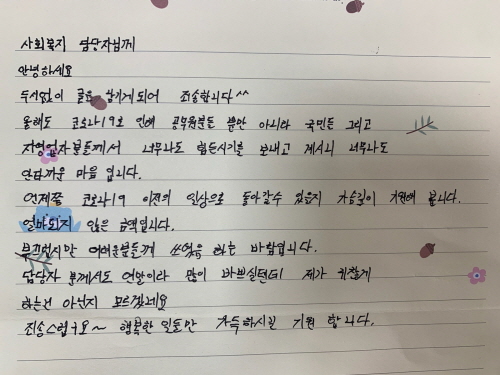 사회복지 담당자님께
안녕하세요
두서없이 글을 남기게되어 죄송합니다^^
올해도 코로나19로 인해 공무원분들 뿐만 아니라 국민든 그리고
자영업자분들께서 너무나도 힘든시기를 보내고 계셔서 너무나도
안타까운 마음 입니다.
언제쯤 코로나19 이전의 일상으로 돌아갈수 있을지 가슴깊이 기원해 봅니다.
얼마되지 않은 금액입니다.
부끄럽지만 어려운분들께 쓰였음 하는 바람입니다.
담당자 분께서도 연말이라 많이 바쁘실텐데 제가 귀찮게
하는건 아닌지 모르겠네요
죄송스럽구요~ 행복한 일들만 가득하시길 기원 합니다.